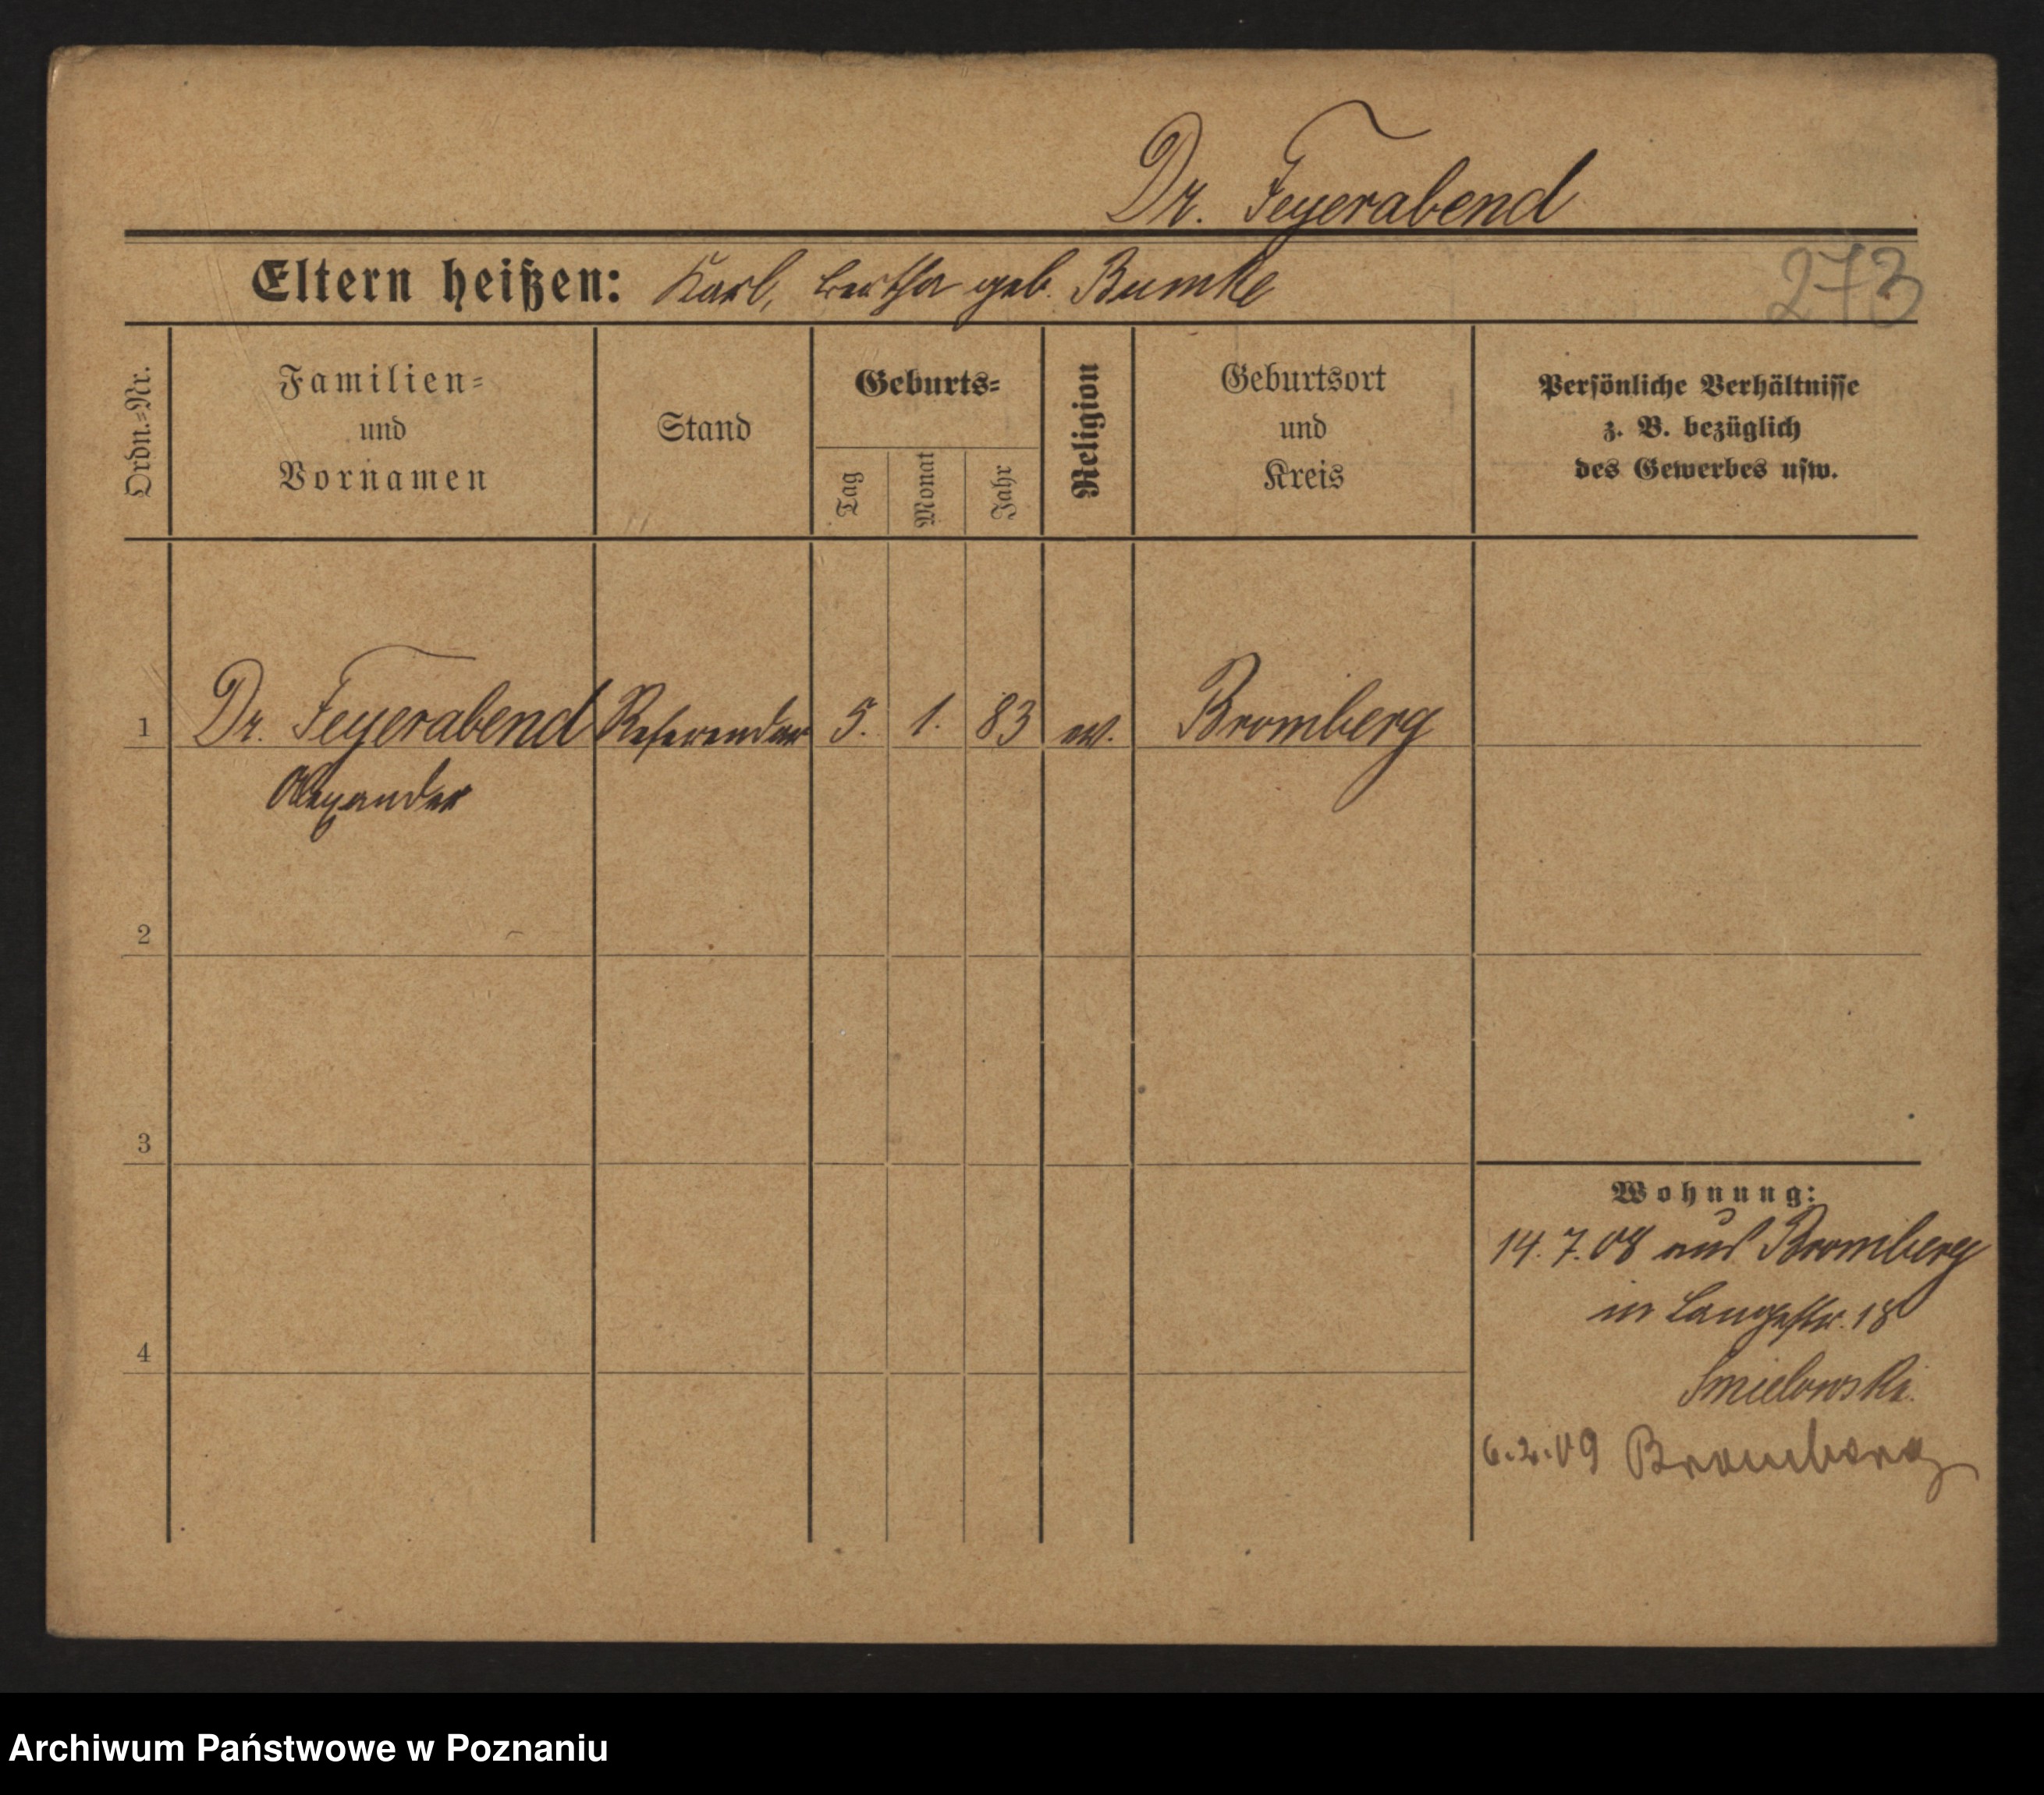 Dr. Feyerabend
Eltern heißen: Karl, Bertha geb. Bumke
273
Ordn.=Nr.
Familien=
und
Vornamen
Stand
Geburts=
Tag
Monat
Jahr
Religion
Geburtsort
und
Kreis
Persönliche Verhältnisse
z. B. bezüglich
des Gewerbes usw.
1 Dr. Feyerabend Referendar 5. 1. 83 ev. Bromberg
Alexander
2
3
4
Wohnung:
14.7.08 aus Bromberg
in Langestr. 18
Smielowski.
6.2.09 Bromberg
Archiwum Państwowe w Poznaniu